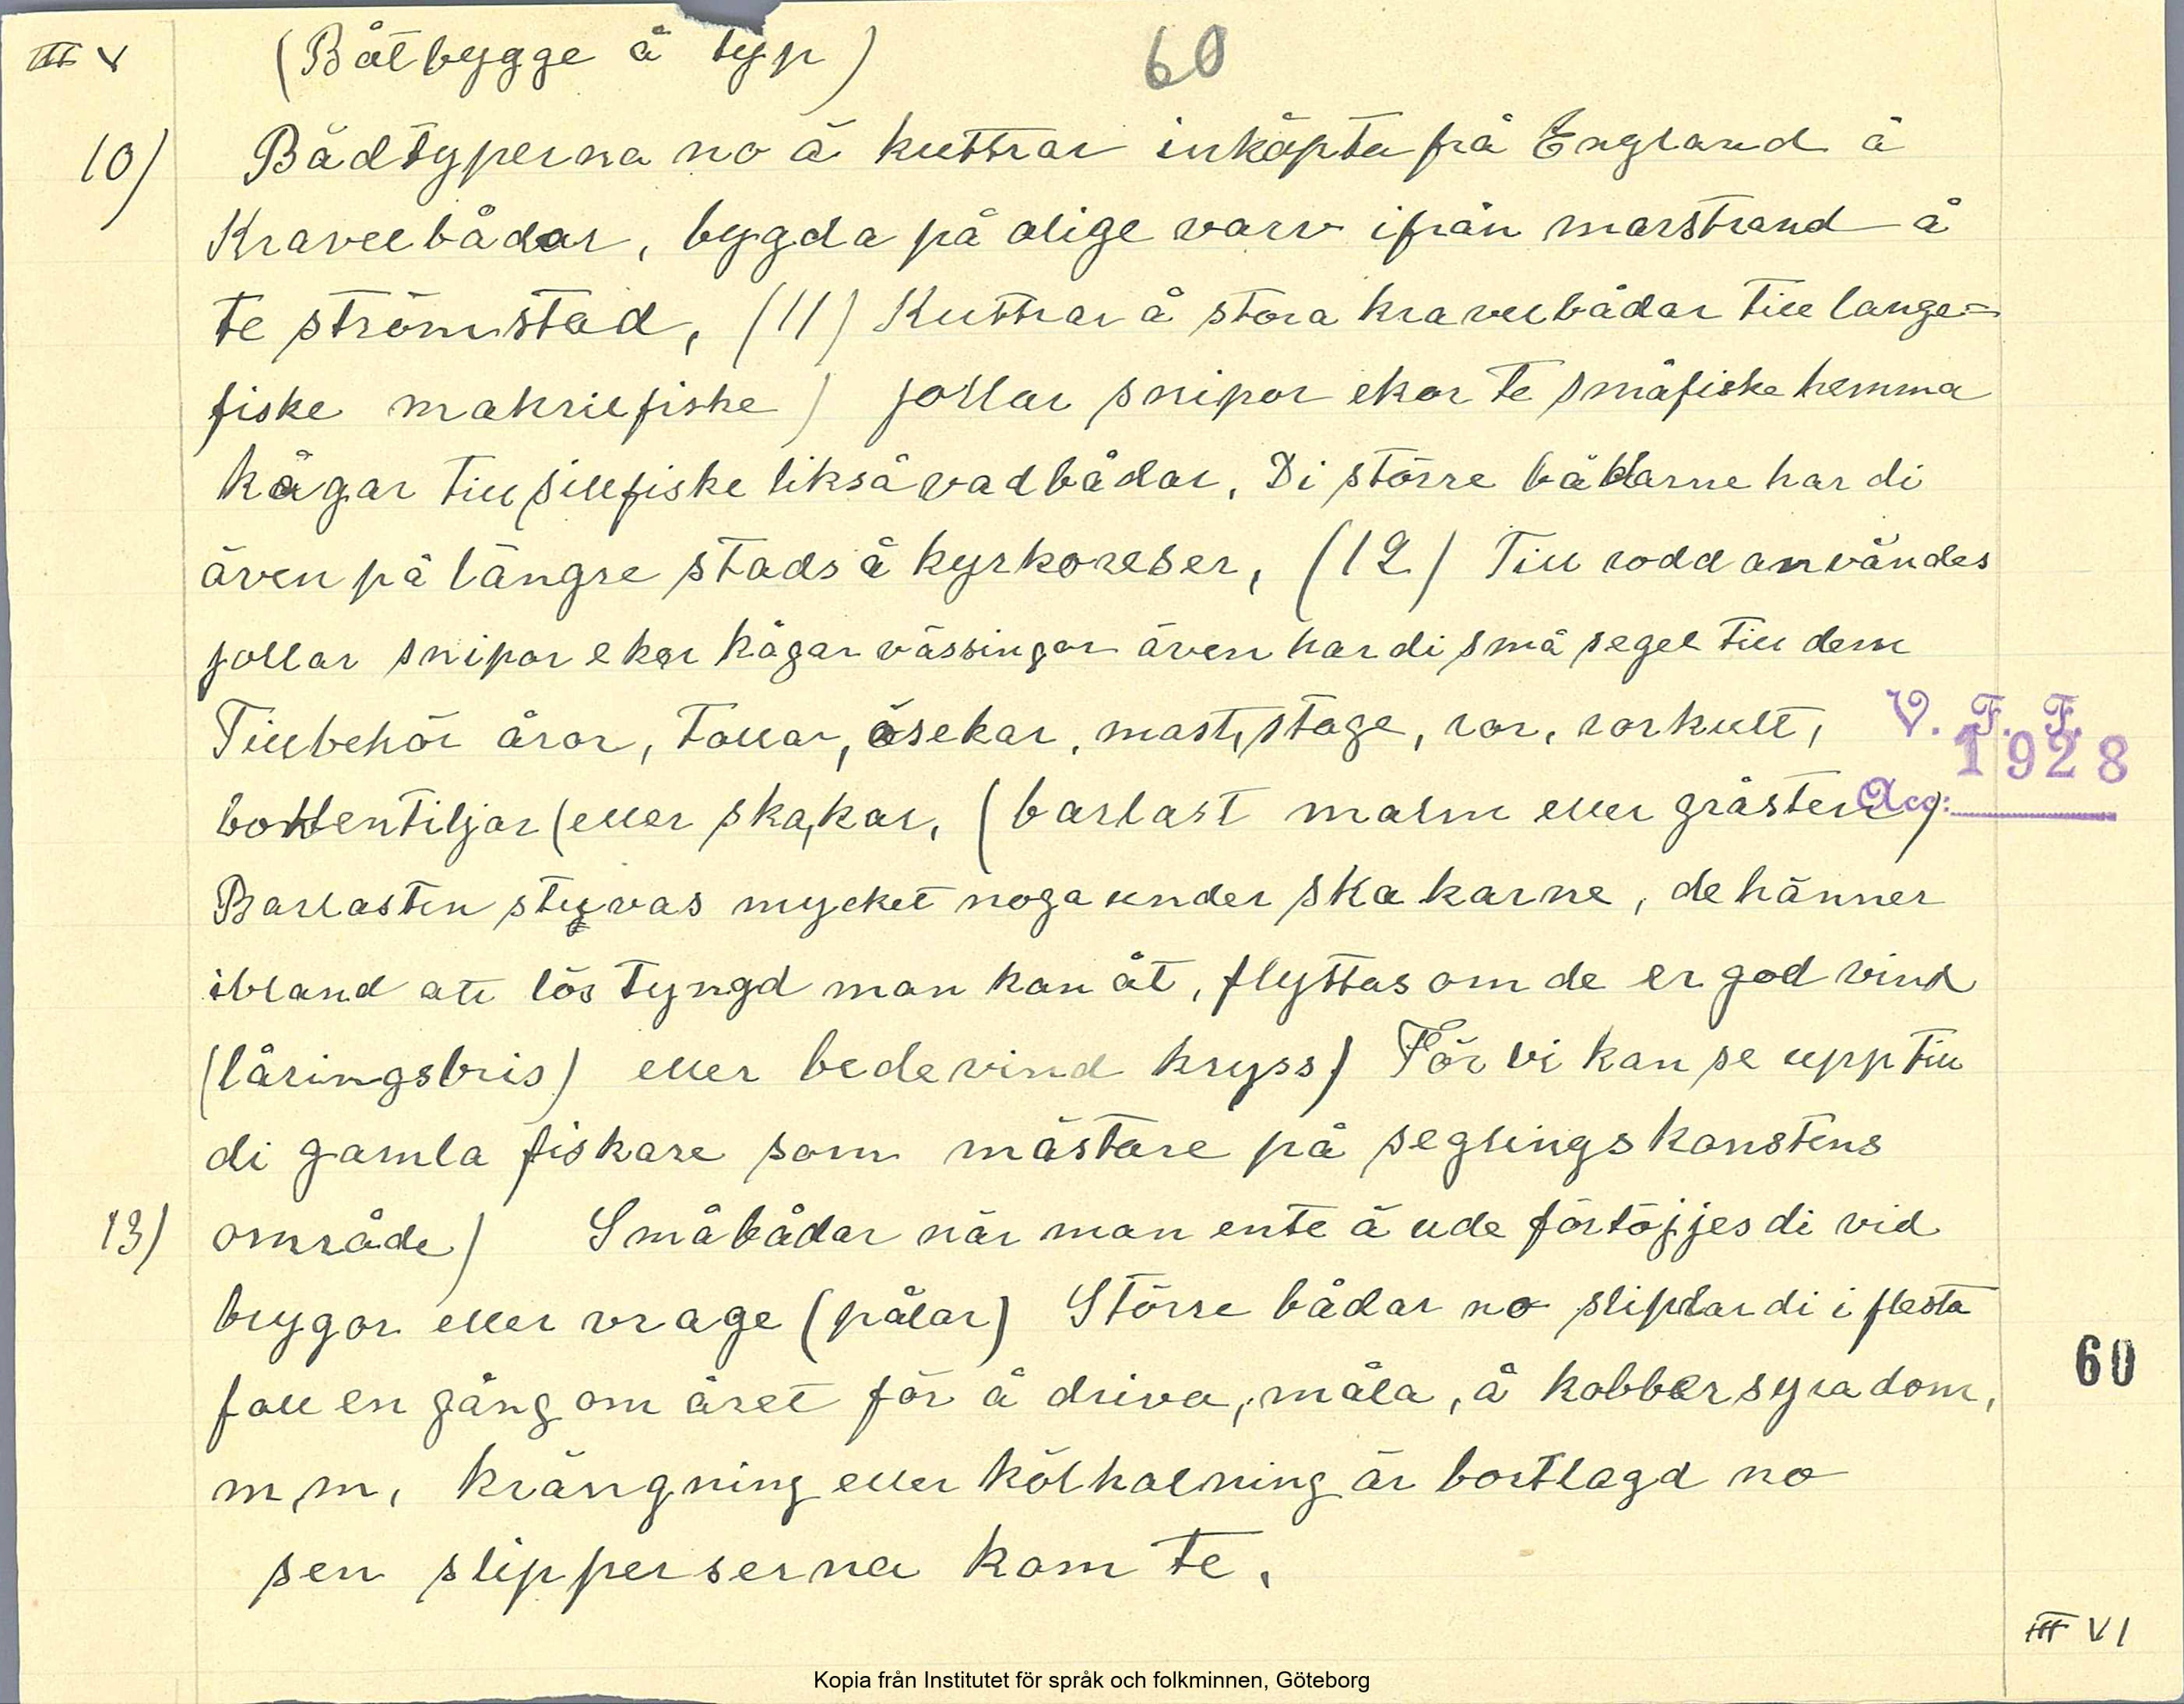 III V (Båtbygge å typ) 60
10) Bådtyperna no ä kuttrar inköpta frå England å
Kravelbådar, bygda på olige varv ifrån marstrand å
te strömstad, (11) Kuttrar å stora kravelbådar till lange=
fiske makrillfiske) jollar snipor ekor te småfiske hemma
kågar till sillfiske likså vadbådar. Di större bådarne har di
även på längre stads å kyrkoreser, (12) Till rodd användes
jollar snipor ekor kågar vässingar även har di små segel till dem
Tillbehör åror, tollar, ösekar, mast, stage, ror, rorkult,
bottentiljor (eller skakar, (barlast malm eller gråsten)
Barlasten styvas mycket noga under skakarne, de hänner
ibland att lös tyngd man kan åt, flyttas om de er god vind
(låringsbris) eller bedevind kryss) För vi kan se upp till
di gamla fiskare som mästare på seglingskonstens
13) område) Småbådar när man ente ä ude förtöjjes di vid
brygor eller vrage (pålar) Större bådar no slippar di i flesta
fall en gång om året för å driva, måla, å kobbersyra dom,
m, m, krängning eller kölhalning är bortlagd no
sen slipperserna kom te.
V. F. F.
1928
Acc:
60
III VI
Kopia från Institutet för språk och folkminnen, Göteborg